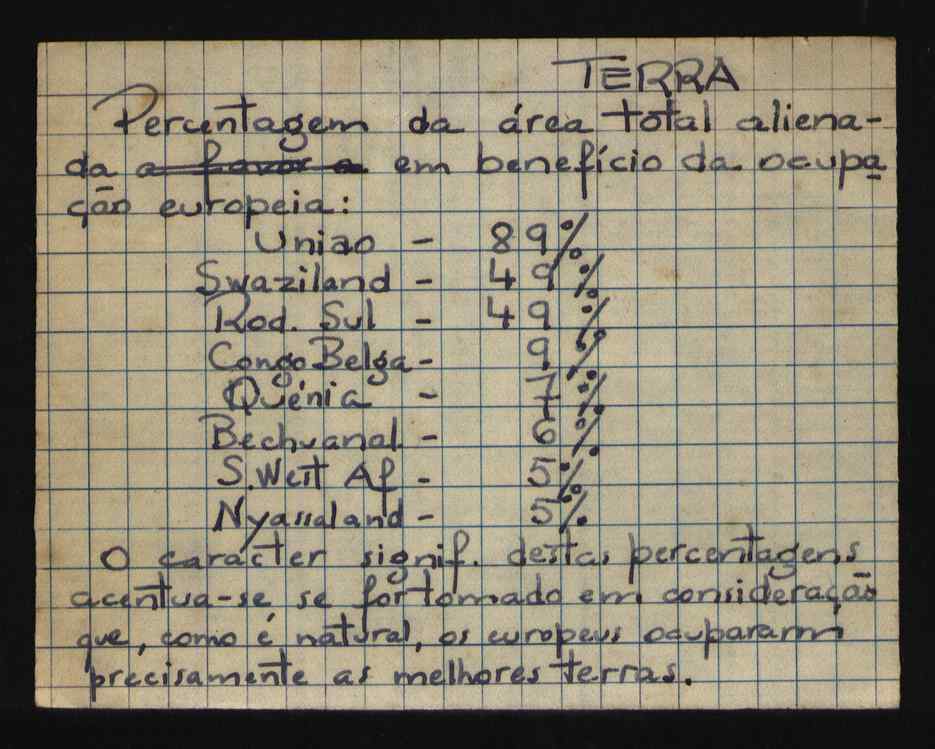 TERRA
Percentagem da área total aliena-
da a favor a em benefício da ocupa
ção europeia:
União - 89%
Swaziland - 49%
Rod. Sul - 49%
Congo Belga - 9%
Quénia - 7%
Bechuanal - 6%
S. West Af - 5%
Nyassaland - 5%
O carácter signif. destas percentagens
acentua-se, se for tomado em consideração
que, como é natural, os europeus ocuparam
precisamente as melhores terras.